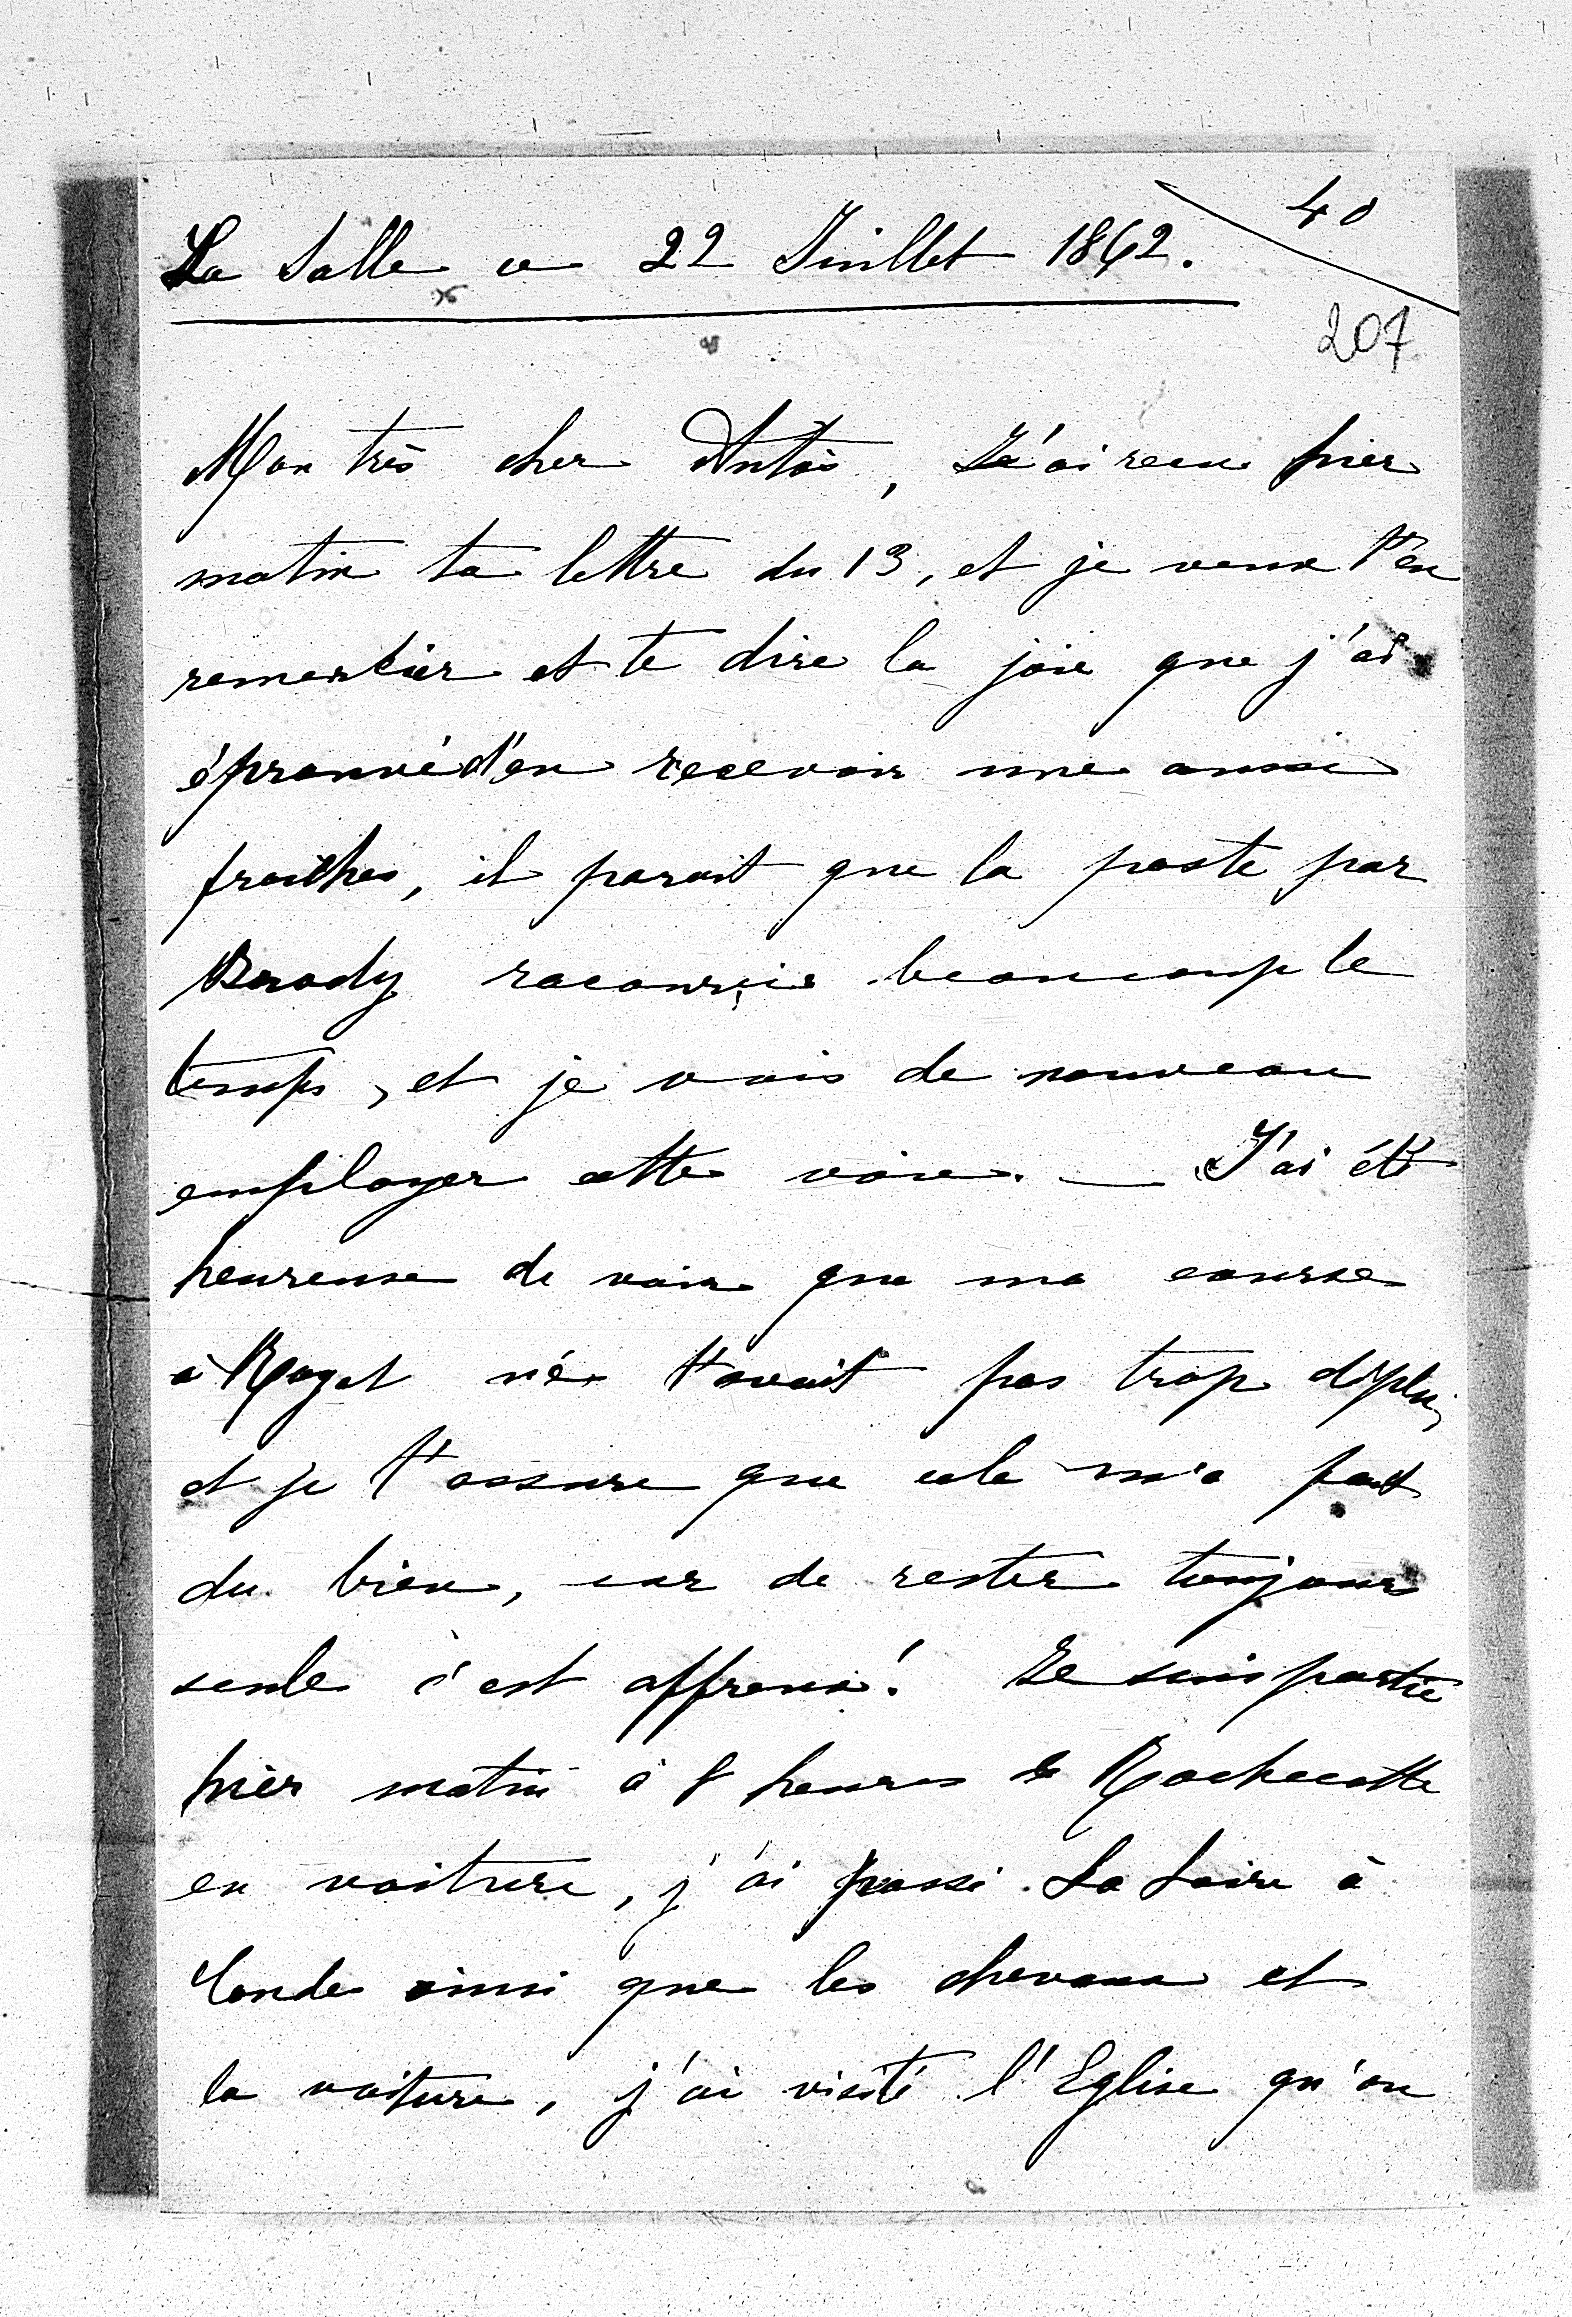 40
La Salle ce 22 Juillet 1862.
207
Mon très cher Antoś, J'ai recu hier
matin ta lettre du 13, et je veux t'en
remercier et te dire la joie que j'ai
éprouvé d'en recevoir une aussi
fraiche, il parait que la poste par
Brody racourcie beaucoup le
temps, et je vais de nouveau
employer cette voie. — J'ai été
heureuse de voir que ma course
à Royat ne t'avait pas trop déplu,
et je t'assure que cela m'a fait
du bien, car de rester toujours
seule c'est affreux! Je suis partie
hier matin à 8 heures de Rochecotte
en voiture, j'ai passé La Loire à
ainsi que les chevaux et
la voiture, j'ai visité l'Eglise qu'on